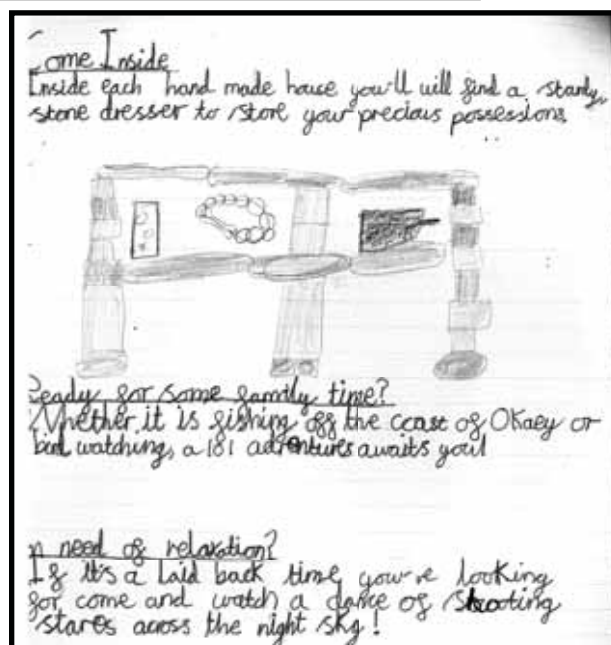 Come Inside
Inside each hand made house you'll will find a sturdy,
stone dresser to store your precious possessions
Ready for some family time?
Whether it is fishing off the coast of Okaey or
bird watching, a 181 adventures awaits you!
In need of relaxation?
If it's a laid back time you're looking
for come and watch a dance of shooting
stares across the night sky!